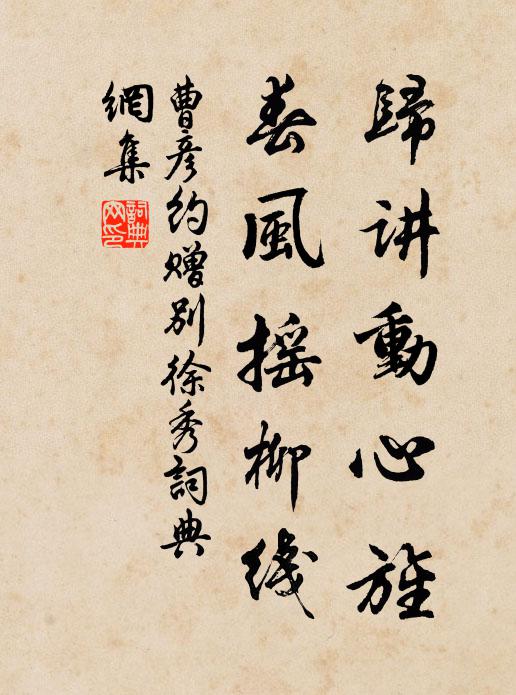 歸讲動心旌
春風摇柳线
曹彦约赠别徐秀詞典
網集
詞典
网印